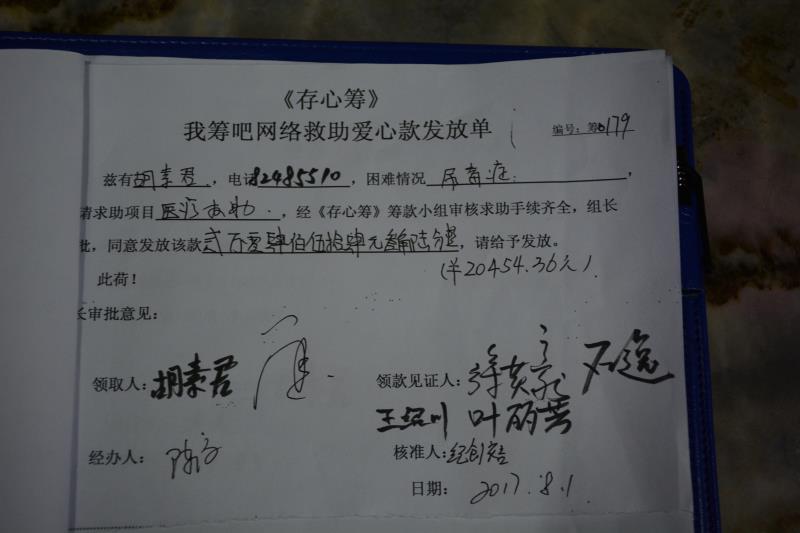 《存心筹》
我筹吧网络救助爱心款发放单
编号：筹0179
兹有胡素君，电话82485510，困难情况尿毒症，
请求助项目医疗救助，经《存心筹》筹款小组审核求助手续齐全，组长
批，同意发放该款贰万零肆佰伍拾肆元叁角陆分整，请给予发放。
(￥20454.36元)
此荷！
长审批意见：
领取人：胡素君
领款见证人：
王绍川 叶丽芸
经办人：
核准人：
日期：2017.8.1